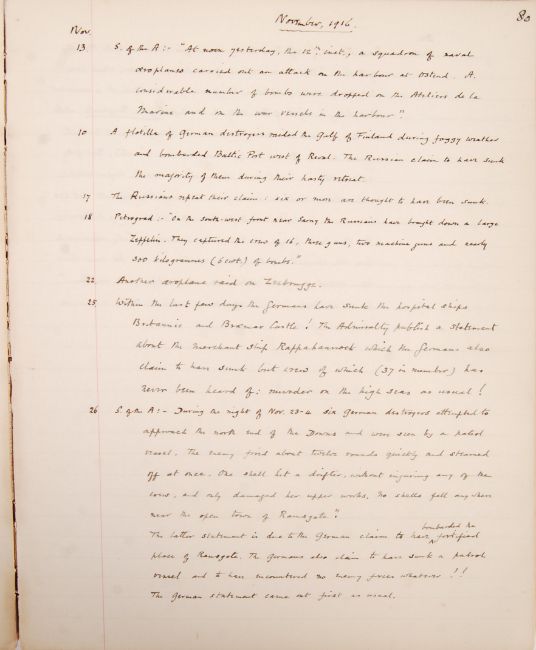 November, 1916.
80
Nov.
13 S. of the A :- "At noon yesterday, the 12th inst., a squadron of naval
aeroplanes carried out an attack on the harbour at Ostend. A
considerable number of bombs were dropped on the Ateliers de la
Marine and on the war vessels in the harbour".
10 A flotilla of German destroyers raided the Gulf of Finland during foggy weather
and bombarded Baltic Port west of Reval. The Russian claim to have sunk
the majority of them during their hasty retreat.
17 The Russians repeat their claim : six or more are thought to have been sunk.
18 Petrograd :- "On the south-west front near Sarny the Russians have brought down a large
Zeppelin. They captured the crew of 16, three guns, two machine guns and nearly
300 kilogrammes (6 cwt.) of bombs."
22 Another aeroplane raid on Zeebrugge.
25 Within the last few days the Germans have sunk the hospital ships
Britannic and Braemar Castle ! The Admiralty publish a statement
about the merchant ship Rappahannock which the Germans also
claim to have sunk but crew of which (37 in number) has
never been heard of : murder on the high seas as usual !
26 S. of the A :- During the night of Nov. 23-4 six German destroyers attempted to
approach the north end of the Downs and were seen by a patrol
vessel. The enemy fired about twelve rounds quickly and steamed
off at once. One shell hit a drifter, without injuring any of the
crew, and only damaged her upper works. No shells fell anywhere
near the open town of Ramsgate".
The latter statement is due to the German claim to have bombarded the fortified
place of Ramsgate. The Germans also claim to have sunk a patrol
vessel and to have encountered no enemy forces whatever !!
The German statement came out first as usual.